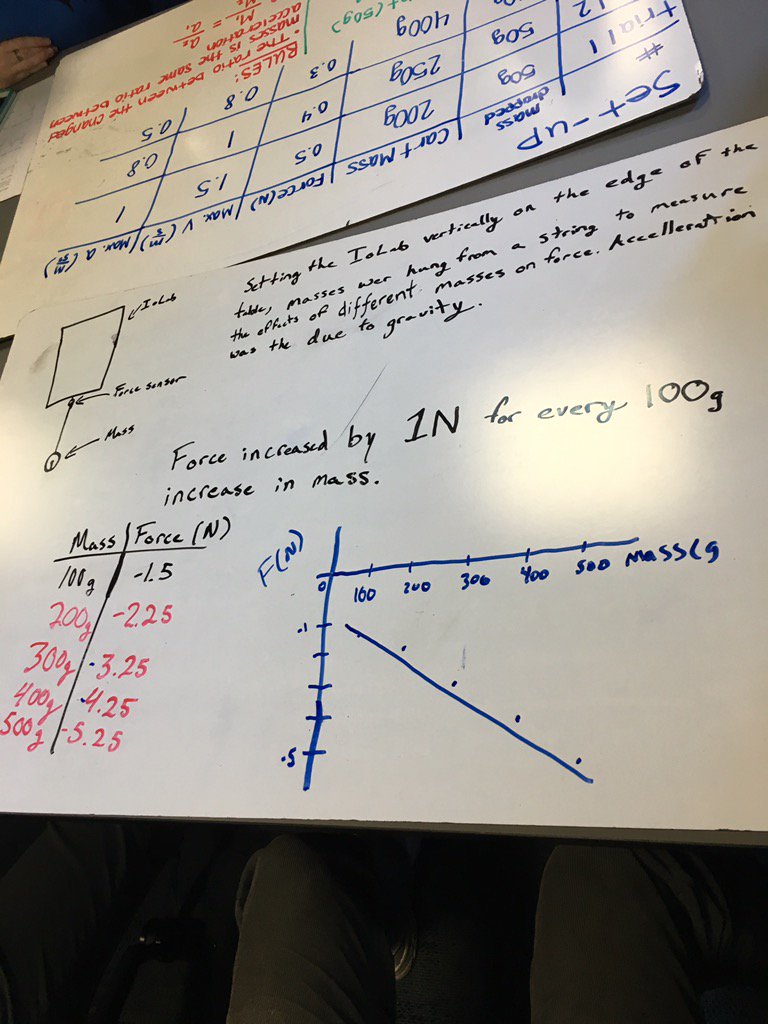 Set-up
trial #
mass dropped
Cart Mass
Force(N)
Max. V (m/s)
Max. a (m/s²)
1
50g
200g
0.5
1.5
1
2
50g
250g
0.4
1
0.8
400g
0.3
0.8
0.5
RULES:
• The ratio between the changed
masses is the same ratio between
acceleration
(50g)
IoLab
Force sensor
Mass
Setting the IoLab vertically on the edge of the
table, masses wer hung from a string to measure
the effects of different masses on force. Accelleration
was the due to gravity.
Force increased by 1N for every 100g
increase in mass.
Mass Force (N)
100g -1.5
200g -2.25
300g -3.25
400g -4.25
500g -5.25
F(N)
0 100 200 300 400 500 Mass(g
-1
-5